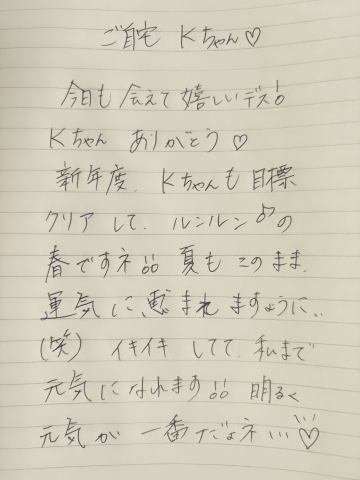 ご自宅 Kちゃん♡
今日も会えて嬉しいデス!
Kちゃん ありがとう♡
新年度、Kちゃんも目標
クリアして、ルンルン♪の
春ですネ!! 夏もこのまま、
運気に、恵まれますように、、
(笑) イキイキしてて、私まで
元気になれます!! 明るく
元気が一番だよネ、、、♡